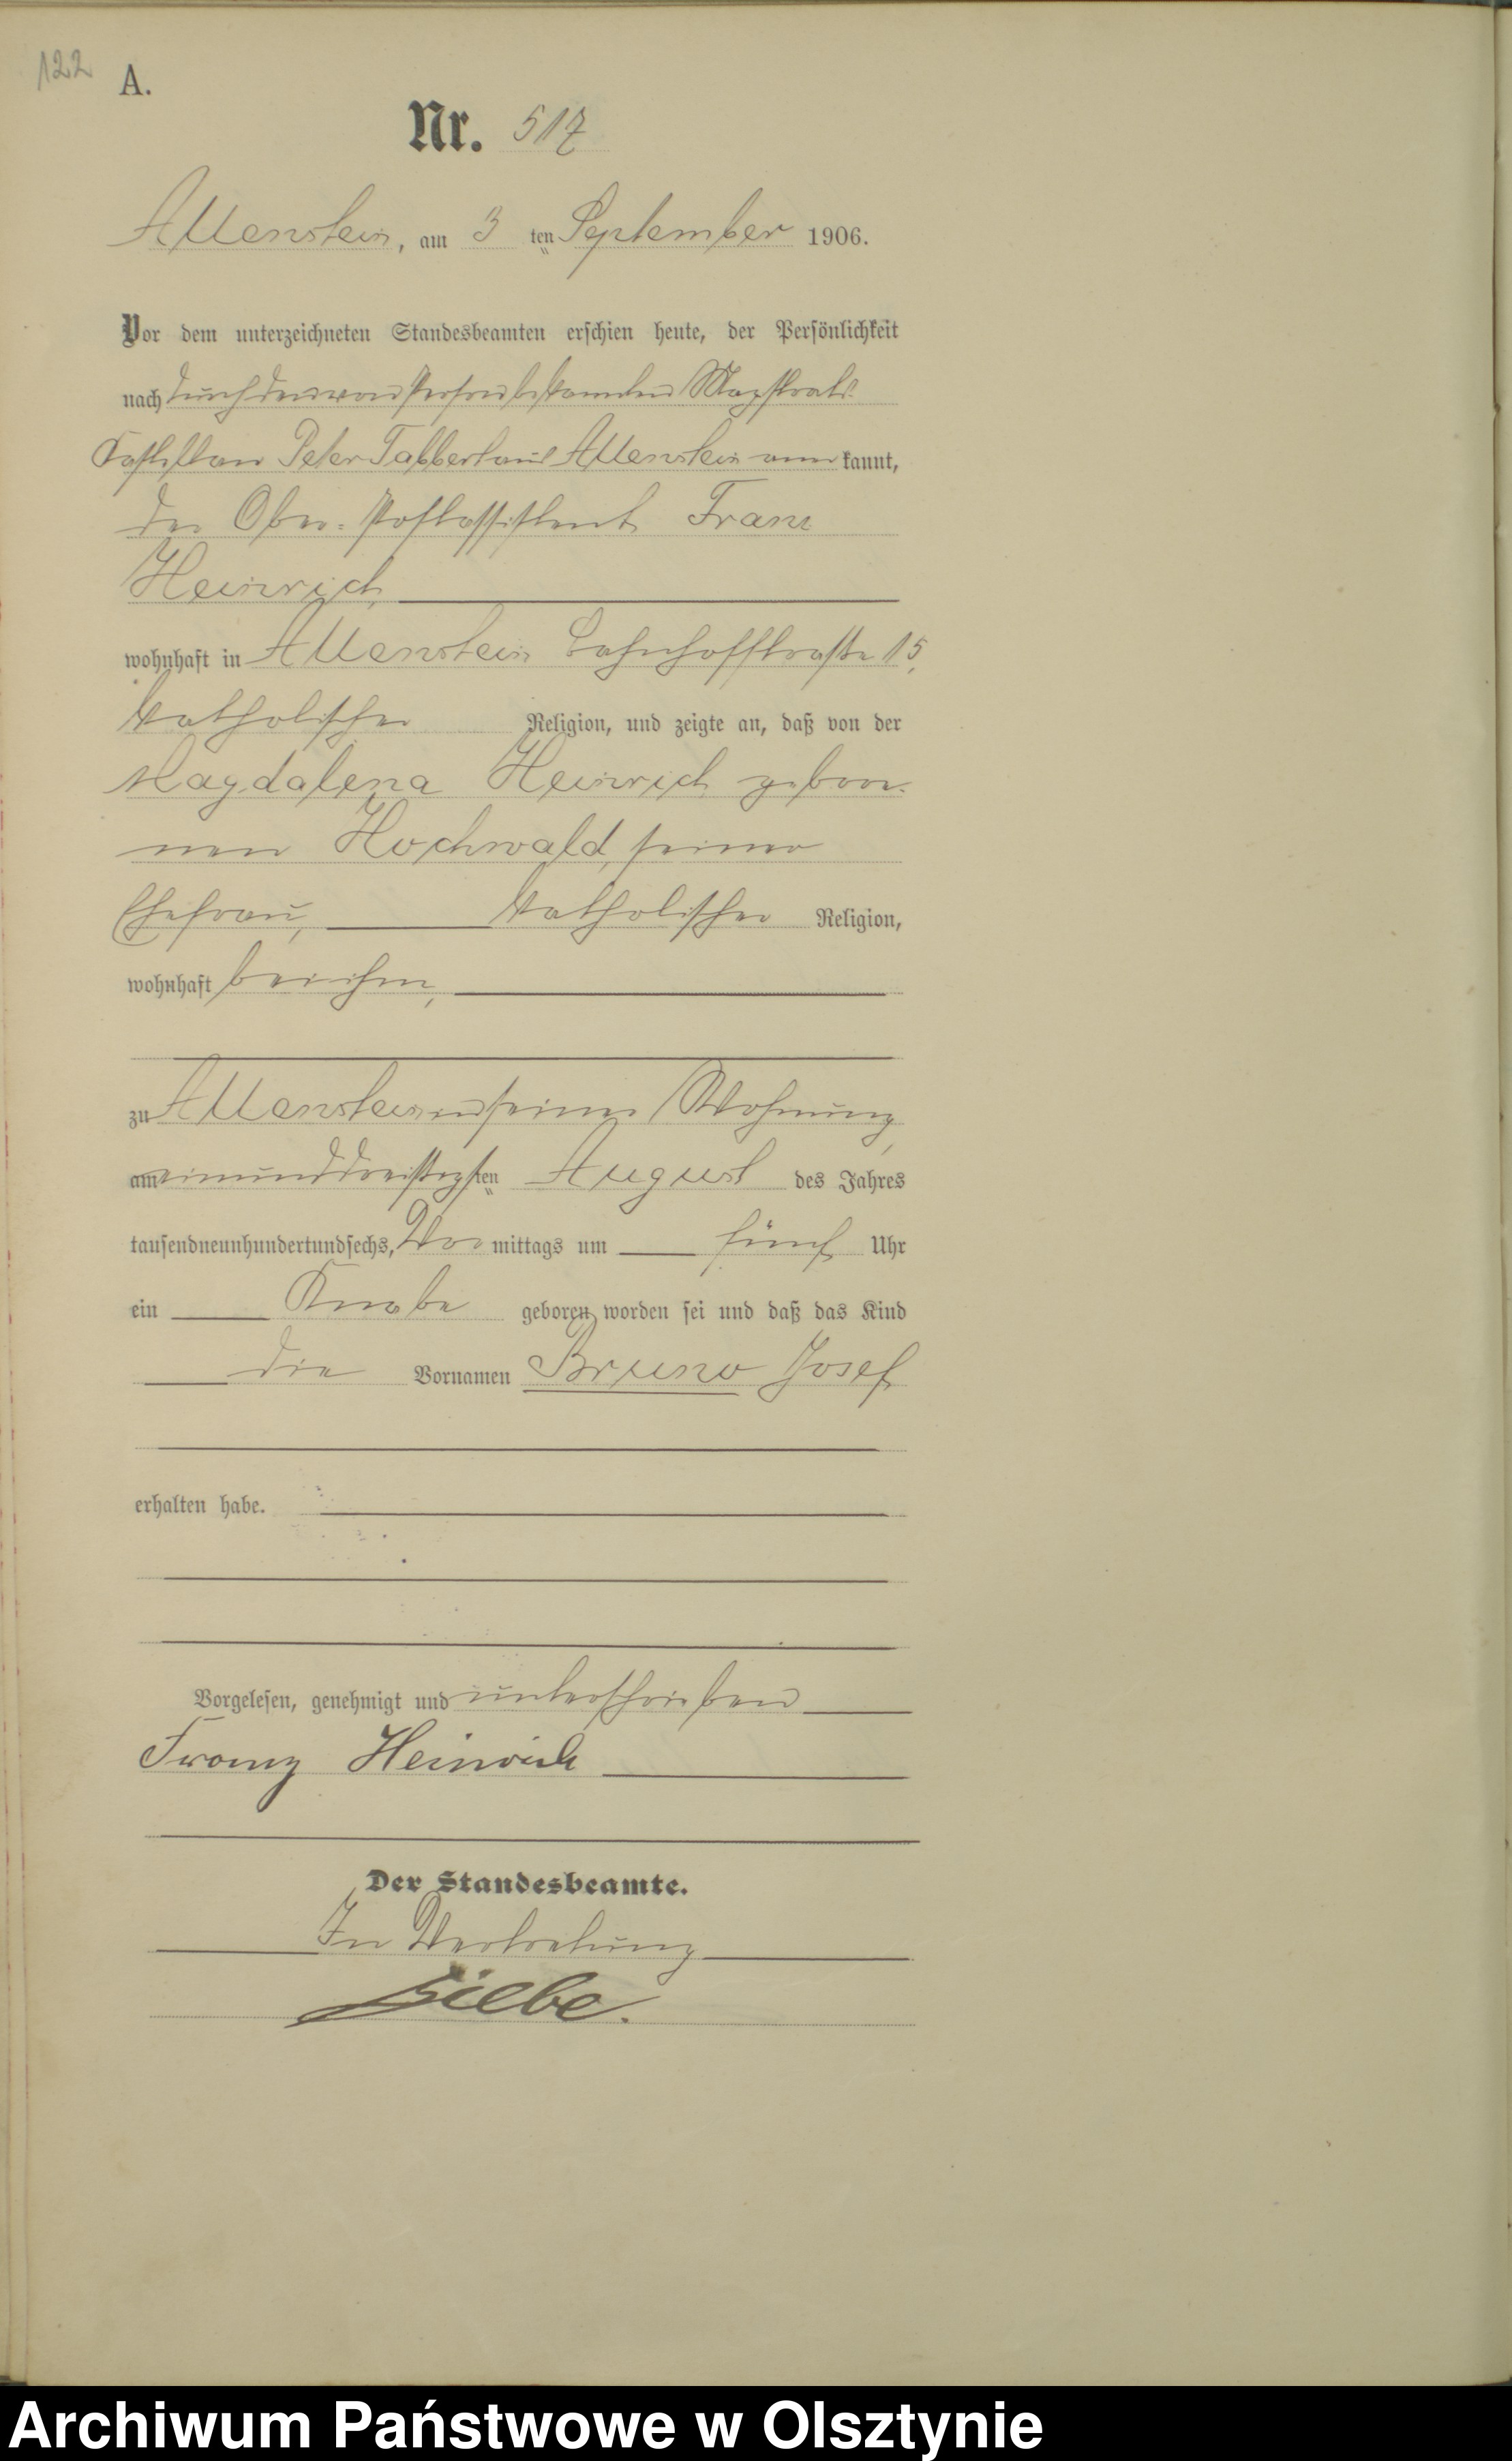 122
A.
Nr. 517
Allenstein, am 3 ten September 1906.
Vor dem unterzeichneten Standesbeamten erschien heute, der Persönlichkeit
nach durch den von Person bekannten Magistrats-
Kastellan Peter Tabbert aus Allenstein aner kannt,
der Ober-Postassistent Franz
Heinrich
wohnhaft in Allenstein Bahnhofstraße 15,
katholischer Religion, und zeigte an, daß von der
Magdalena Heinrich gebore-
nen Hochwald, seiner
Ehefrau, katholischer Religion,
wohnhaft bei ihm,
zu Allenstein in seiner Wohnung,
am einunddreißigsten August des Jahres
tausendneunhundertundsechs, Vor mittags um fünf Uhr
ein Knabe geboren worden sei und daß das Kind
die Vornamen Bruno Josef
erhalten habe.
Vorgelesen, genehmigt und unterschrieben
Franz Heinrich
Der Standesbeamte.
In Vertretung
Archiwum Państwowe w Olsztynie